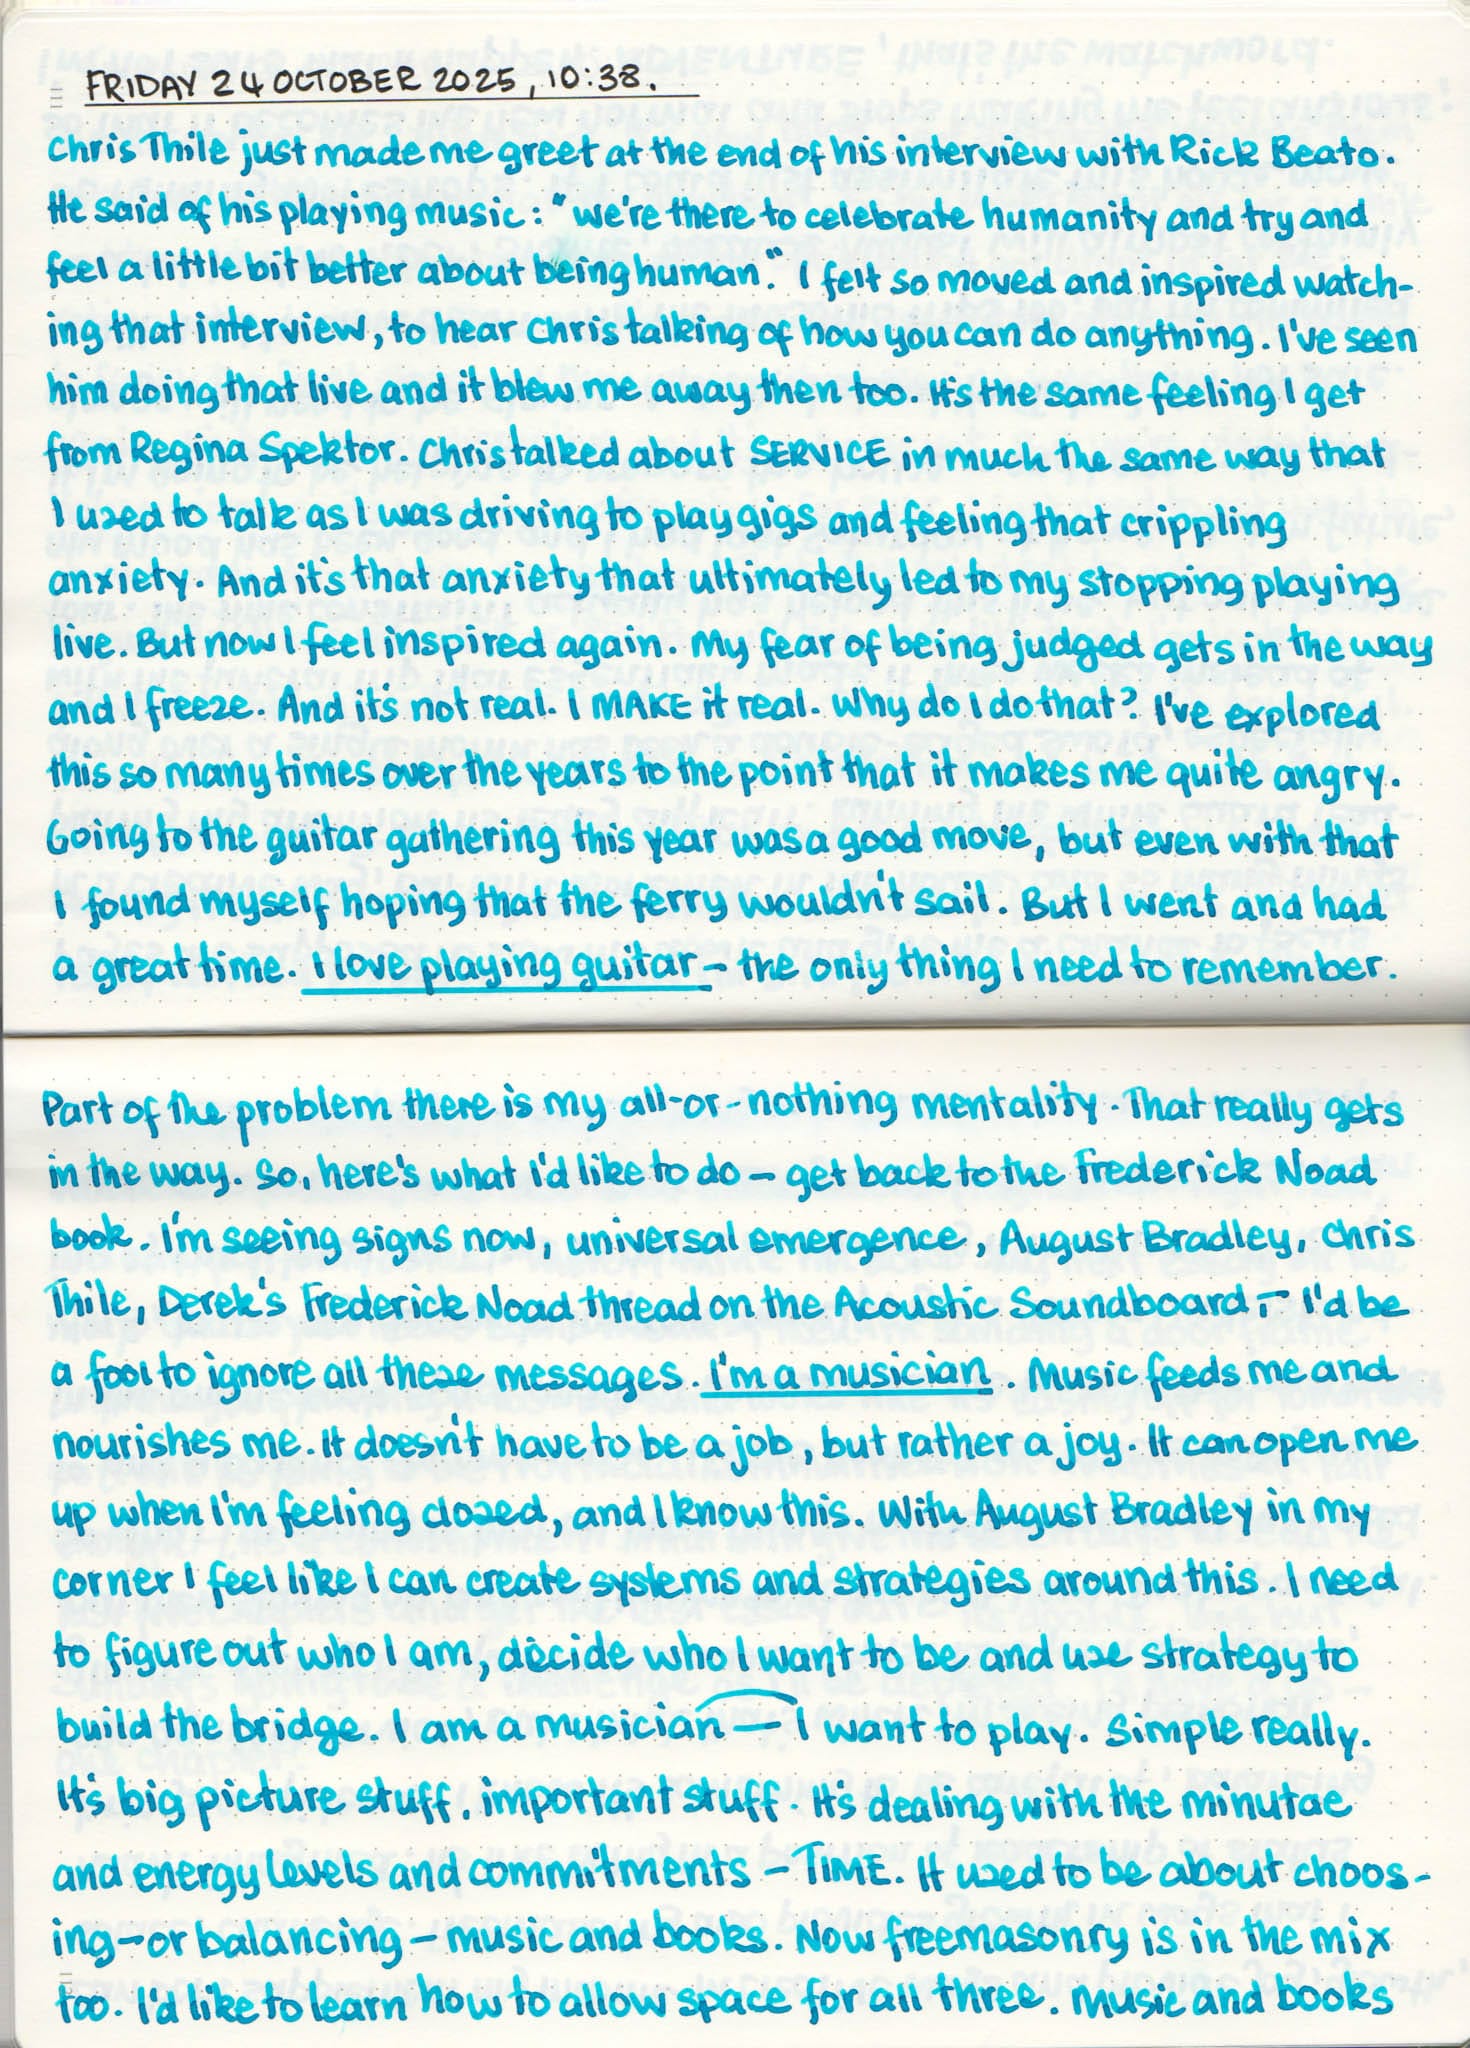 FRIDAY 24 OCTOBER 2025, 10:38.
Chris Thile just made me greet at the end of his interview with Rick Beato.
He said of his playing music: "we're there to celebrate humanity and try and
feel a little bit better about being human." I felt so moved and inspired watch-
ing that interview, to hear Chris talking of how you can do anything. I've seen
him doing that live and it blew me away then too. It's the same feeling I get
from Regina Spektor. Chris talked about SERVICE in much the same way that
I used to talk as I was driving to play gigs and feeling that crippling
anxiety. And it's that anxiety that ultimately led to my stopping playing
live. But now I feel inspired again. My fear of being judged gets in the way
and I freeze. And it's not real. I MAKE it real. Why do I do that? I've explored
this so many times over the years to the point that it makes me quite angry.
Going to the guitar gathering this year was a good move, but even with that
I found myself hoping that the ferry wouldn't sail. But I went and had
a great time. I love playing guitar - the only thing I need to remember.
Part of the problem there is my all-or-nothing mentality. That really gets
in the way. So, here's what I'd like to do - get back to the Frederick Noad
book. I'm seeing signs now, universal emergence, August Bradley, Chris
Thile, Derek's Frederick Noad thread on the Acoustic Soundboard, - I'd be
a fool to ignore all these messages. I'm a musician. Music feeds me and
nourishes me. It doesn't have to be a job, but rather a joy. It can open me
up when I'm feeling closed, and I know this. With August Bradley in my
corner I feel like I can create systems and strategies around this. I need
to figure out who I am, decide who I want to be and use strategy to
build the bridge. I am a musician — I want to play. Simple really.
It's big picture stuff, important stuff. It's dealing with the minutae
and energy levels and commitments - TIME. It used to be about choos-
ing - or balancing - music and books. Now freemasonry is in the mix
too. I'd like to learn how to allow space for all three. Music and books